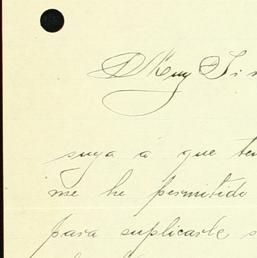 Muy Si
suya á que ten
me he permitido
para suplicarle s